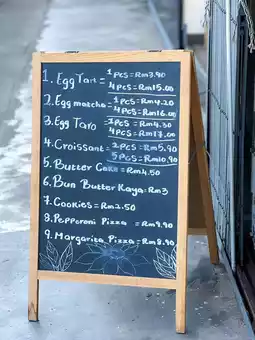 1. Egg Tart = 1 pcs = Rm3.90
4 pcs = Rm15.00
2. Egg matcha = 1 pcs = Rm4.20
4 pcs = Rm16.00
3. Egg Taro = 1 pcs = Rm4.30
4 pcs = Rm17.00
4. Croissant = 2 pcs = Rm5.90
5 pcs = Rm10.90
5. Butter Cake = Rm4.50
6. Bun Butter Kaya = Rm3
7. Cookies = Rm2.50
8. Pepperoni Pizza = Rm9.90
9. Margarita Pizza = Rm8.90